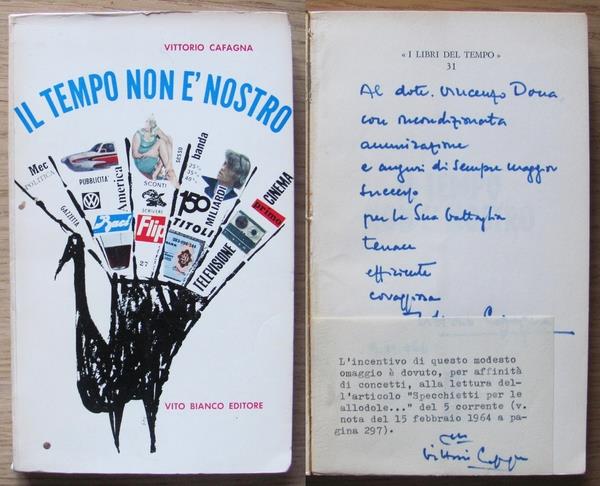 VITTORIO CAFAGNA
IL TEMPO NON E' NOSTRO
Mec
POLITICA
GAZZETTA
PUBBLICITA'
America
SCONTI
SESSO
25%
35%
40%
banda
SCRIVERE
Flip
27
150
TITOLI
MILIARDI
TELEVISIONE
CINEMA
primo
VITO BIANCO EDITORE
« I LIBRI DEL TEMPO »
31
Al dott. Vincenzo Dona
con incondizionata
ammirazione
e auguri di sempre maggior
successo
per la Sua battaglia
tenace
efficiente
coraggiosa
L'incentivo di questo modesto
omaggio è dovuto, per affinità
di concetti, alla lettura del-
l'articolo "Specchietti per le
allodole..." del 5 corrente (v.
nota del 15 febbraio 1964 a pa-
gina 297).
Vittorio Cafagna